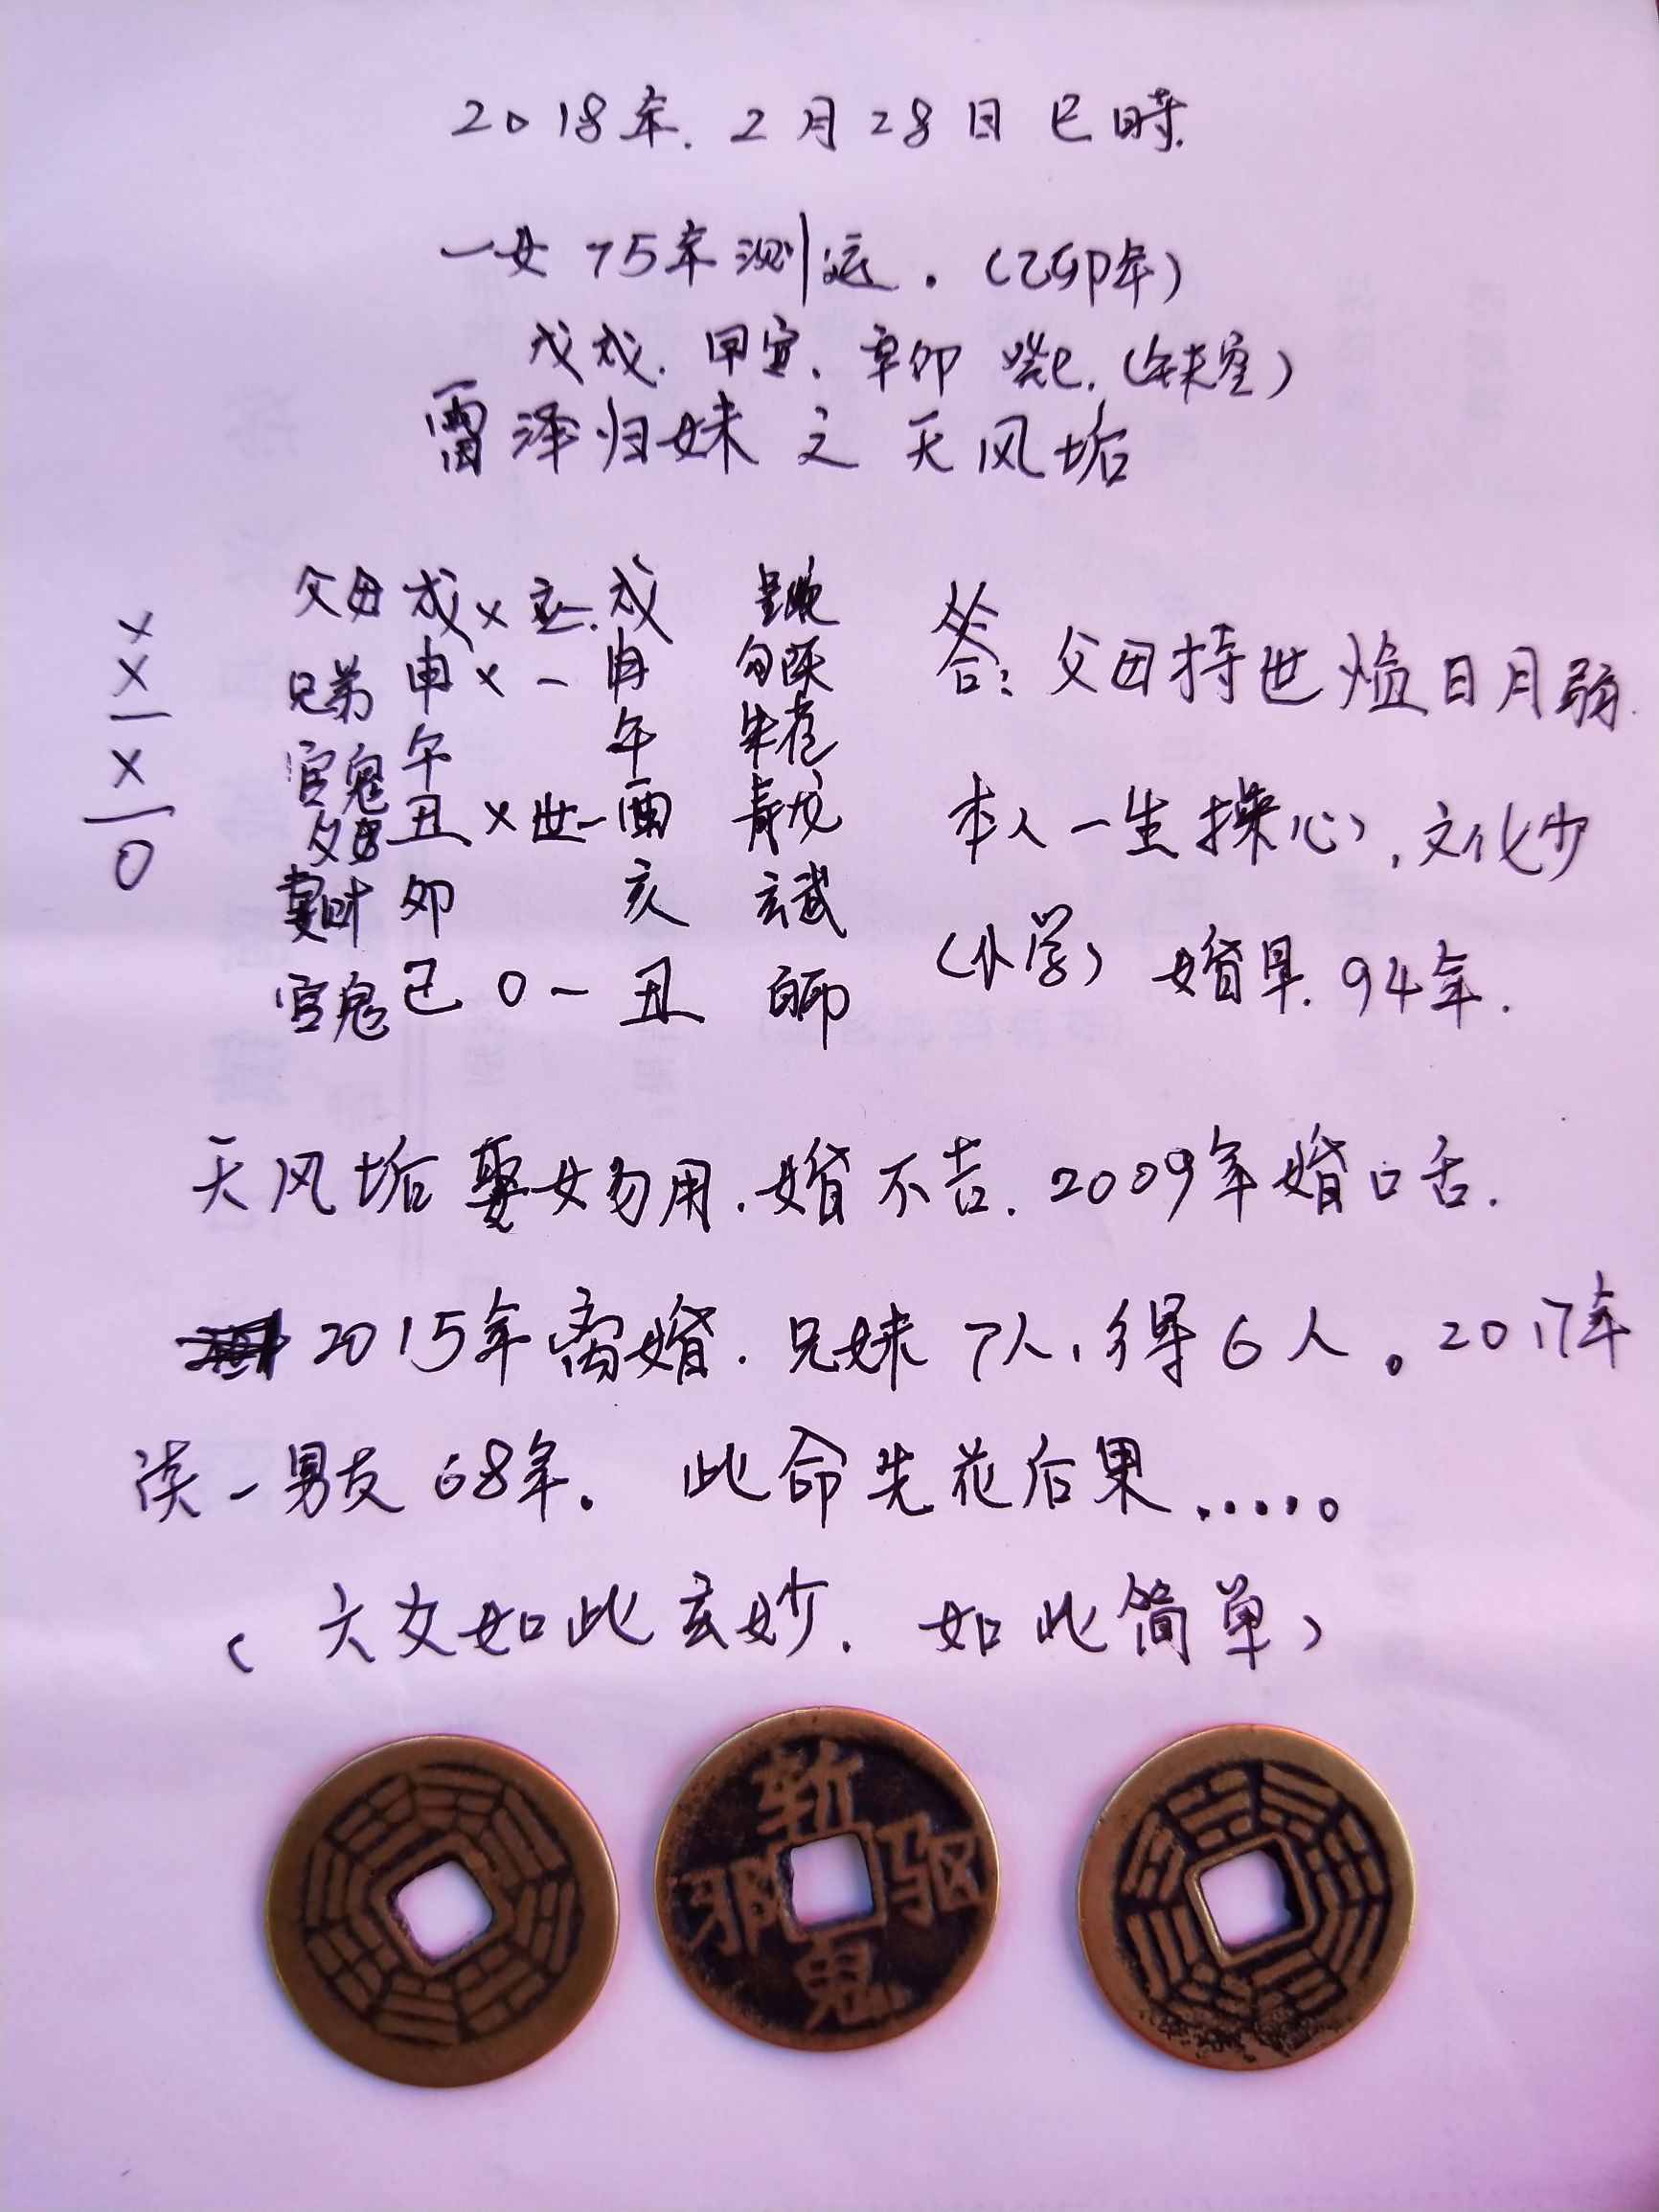 2018年.2月28日巳時.
一女75年测运.(乙卯年)
戊戌.甲寅.辛卯 癸巳.(午未空)
雷泽归妹之天风垢
父母戌×应.戌
兄弟申×一申 勾陈
官鬼午 午 朱雀
父母丑×世一酉 青龙
妻财卯 亥 玄武
官鬼巳0一丑 白虎
×
×
一
×
一
0
答:父母持世临日月弱.
本人一生操心,文化少
(小学)婚早.94年.
天风垢娶女勿用.婚不吉.2009年婚口舌.
2015年离婚.兄妹7人,得6人。2017年
谈一男友68年。此命先花后果.....。
(六爻如此玄妙.如此简单)
斩
邪 驱
鬼